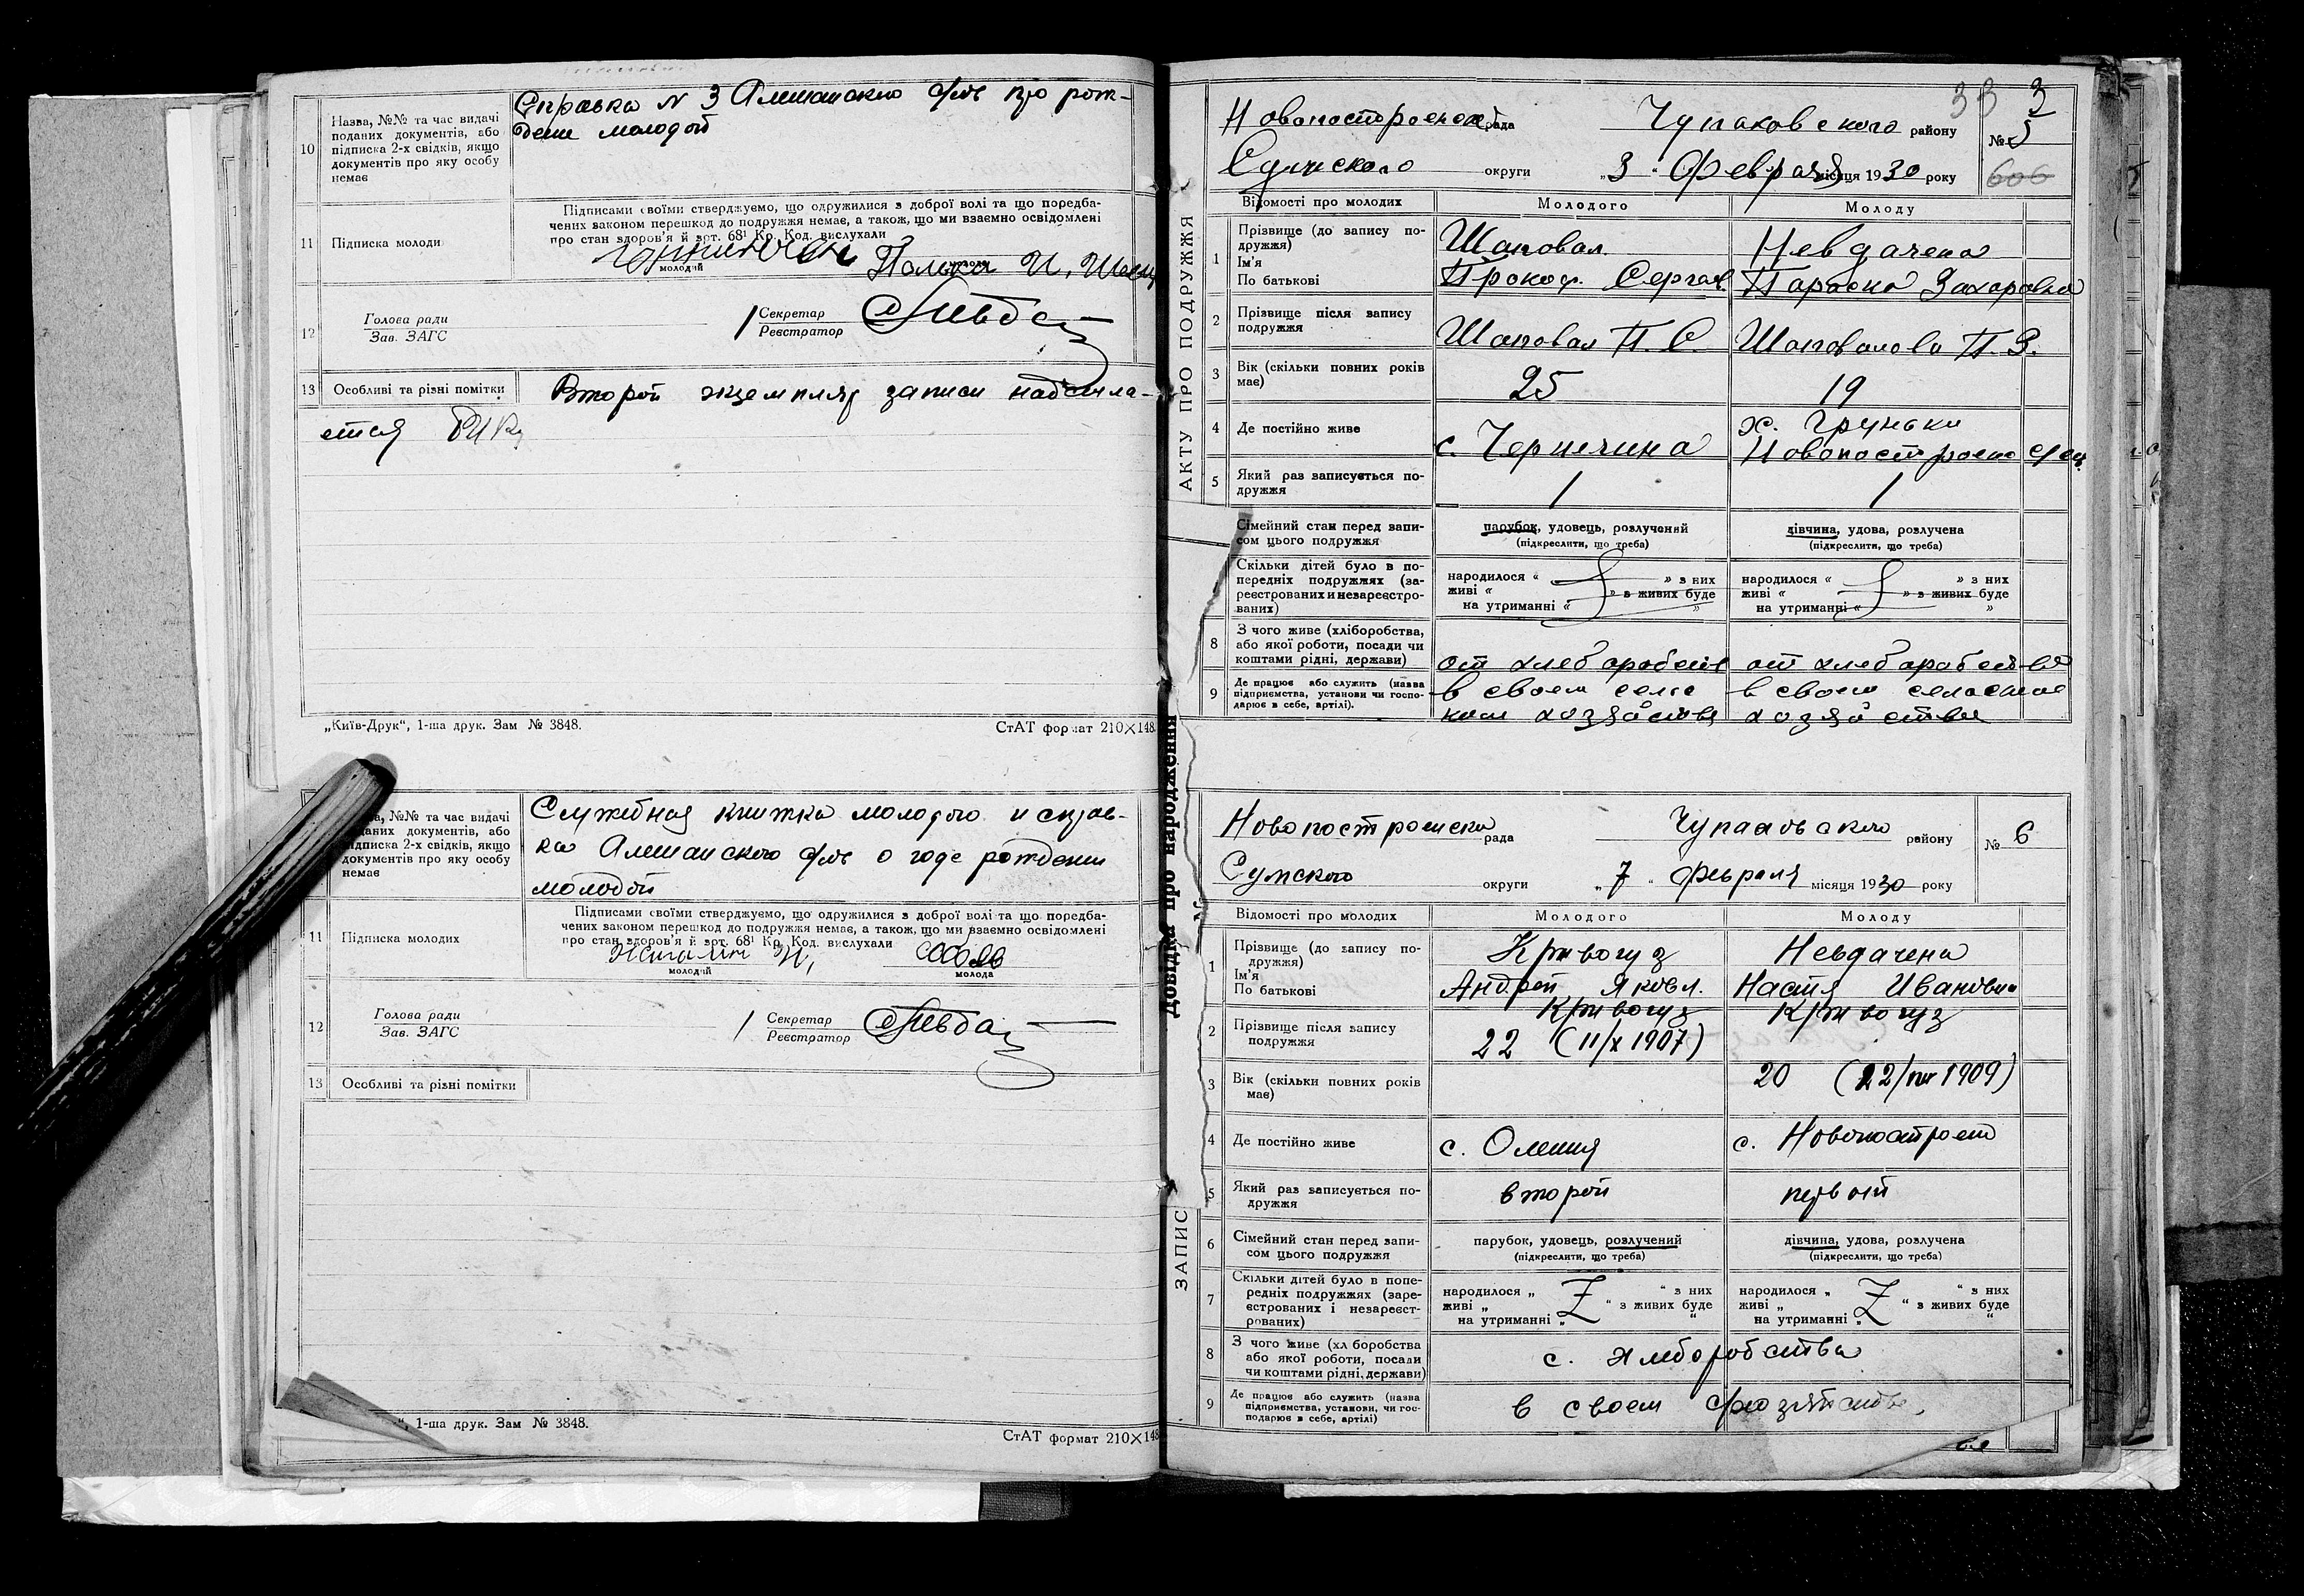 10
Назва, №№ та час видачі
поданих документів, або
підписка 2-х свідків, якщо
документів про яку особу
немає
Справка N 3 Алешанского о рож-
дении молодой
11
Підписка молоди
Підписами своїми стверджуємо, що одружилися з доброї волі та що поредба-
чених законом перешкод до подружжя немає, а також, що ми взаємно освідомлені
про стан здоров'я й арт. 68¹ Кр. Код. вислухали
молодий
12
Голова ради
Зав. ЗАГС
Секретар
Реєстратор
13
Особливі та різні помітки
Второй экземпляр записи надсила-
ется РИК
„Київ-Друк“, 1-ша друк. Зам № 3848.
СтАТ формат 210×148
№№ та час видачі
даних документів, або
підписка 2-х свідків, якщо
документів про яку особу
немає
Служебная книжка молодого и справ-
ка Алешанского о годе рождении
молодой
11
Підписка молодих
Підписами своїми стверджуємо, що одружилися з доброї волі та що поредба-
чених законом перешкод до подружжя немає, а також, що ми взаємно освідомлені
про стан здоров'я й арт. 68¹ Кр. Код. вислухали
молодий
молода
12
Голова ради
Зав. ЗАГС
Секретар
Реєстратор
13
Особливі та різні помітки
1-ша друк. Зам № 3848.
СтАТ формат 210×148
АКТУ ПРО ПОДРУЖЖЯ
Довідка про народження
ЗАПИС
33 3
Новопостроенск рада Чупаховского району № 5
Сумского округи „3“ Февраля місяця 1930 року 606
Відомості про молодих Молодого Молоду
1
Прізвище (до запису по-
дружжя)
Ім'я
По батькові
Шаповал
Прокоф. Сергеев.
Невдачена
Параска Захаровна
2
Прізвище після запису
подружжя
Шаповал П. С.
Шаповалова П. З.
3
Вік (скільки повних років
має)
25
19
4
Де постійно живе
с. Чернечина
х. Груньки
Новопостроено
5
Який раз записується по-
дружжя
1
1
Сімейний стан перед запи-
сом цього подружжя
парубок, удовець, розлучений
(підкреслити, що треба)
дівчина, удова, розлучена
(підкреслити, що треба)
Скільки дітей було в по-
передніх подружжях (за-
реєстрованих и незареєстро-
ваних)
народилося « » з них
живі « » з живих буде
на утриманні « »
народилося « » з них
живі « » з живих буде
на утриманні « »
8
З чого живе (хліборобства,
або якої роботи, посади чи
коштами рідні, держави)
от хлеборобств
от хлеборобства
9
Де працює або служить (назва
підприємства, установи чи госпо-
дарює в себе, артілі).
в своем сельс
ком хозяйстве
в своем сельском
хозяйстве
Новопостроенска рада Чупаховского району № 6
Сумского округи „7“ февраля місяця 1930 року
Відомості про молодих Молодого Молоду
1
Прізвище (до запису по-
дружжя)
Ім'я
По батькові
Кривогуз
Андрей Яковл.
Невдачена
Настя Ивановна
2
Прізвище після запису
подружжя
Кривогуз
Кривогуз
22 (11/X 1907)
3
Вік (скільки повних років
має)
20 (22/ 1909)
4
Де постійно живе
с. Олешня
с. Новопостроено
5
Який раз записується по-
дружжя
второй
первый
6
Сімейний стан перед запи-
сом цього подружжя
парубок, удовець, розлучений
(підкреслити, що треба)
дівчина, удова, розлучена
(підкреслити, що треба)
7
Скільки дітей було в попе-
редніх подружжях (заре-
єстрованих і незареєст-
рованих)
народилося „ “ з них
живі „ “ з живих буде
на утриманні „ “
народилося „ “ з них
живі „ “ з живих буде
на утриманні „ “
8
З чого живе (хл боробства
або якої роботи, посади
чи коштами рідні, держави)
с. хлеборобства
9
Де працює або служить (назва
підприємства, установи, чи гос-
подарює в себе, артілі)
в своем хозяйстве